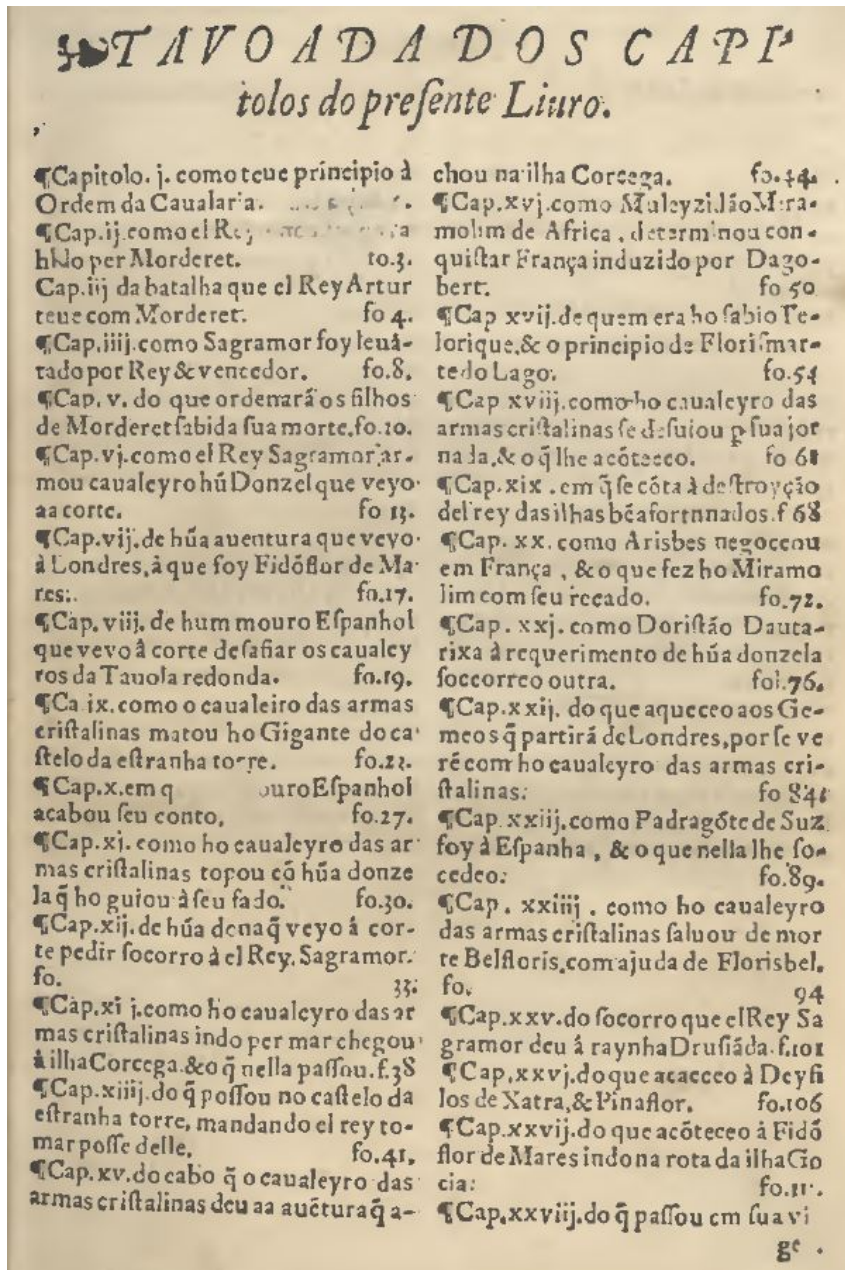 TAVOADA DOS CAPI
tolos do preſente Liuro.
¶Capitolo. j. como teue príncipio à
Ordem da Caualaria.
¶Cap.ij.como el Rey
per Morderet. fo.3.
Cap.iij da batalha que el Rey Artur
teue com Morderet. fo 4.
¶Cap.iiij.como Sagramor foy leuã-
tado por Rey & vencedor. fo.8.
¶Cap. v. do que ordenarã os filhos
de Morderet ſabida ſua morte,fo.10.
¶Cap.vj.como el Rey Sagramor ar-
mou caualeyro hũ Donzel que veyo
aa corte. fo 13.
¶Cap.vij.de hũa auentura que veyo
à Londres,à que foy Fidõflor de Ma-
res:. fo.17.
¶Cap. viij. de hum mouro Eſpanhol
que veyo â corte deſafiar os caualey
ros da Tauola redonda. fo.19.
¶Ca ix. como o caualeiro das armas
criſtalinas matou ho Gigante do ca-
ſtelo da eſtranha torre. fo.22.
¶Cap.x.em q ouro Eſpanhol
acabou ſeu conto, fo.27.
¶Cap.xj. como ho caualeyro das ar
mas criſtalinas topou cõ hũa donze
la q̃ ho guiou à ſeu fado. fo.30.
¶Cap.xij.de hũa dona q̃ veyo á cor-
te pedir ſocorro à el Rey. Sagramor.
fo. 33.
¶Cap.xi j.como ho caualeyro das ar
mas criſtalinas indo per mar chegou
à ilha Corcega.& o q̃ nella paſſou.f.38
¶Cap.xiiij.do q̃ poſſou no caſtelo da
eſtranha torre, mandando el rey to-
mar poſſe delle. fo.41.
¶Cap. xv. do cabo q̃ o caualeyro das
armas criſtalinas deu aa auẽtura q̃ a-
chou na ilha Corcega. fo.44.
¶Cap.xvj.como Muleyzidão Mira-
molim de Africa , determinou con-
quiſtar França induzido por Dago-
bert. fo 50
¶Cap xvij.de quem era ho ſabio Te-
lorique,& o principio de Floriſmar-
te do Lago. fo.54
¶Cap xviij.como ho caualeyro das
armas criſtalinas ſe deſuiou p ſua jor
nada,& o q̃ lhe acõteceo. fo 61
¶Cap.xix . em q̃ ſe cõta à deſtroyção
del rey das ilhas bẽafortnnados.f 68
¶Cap. xx. como Arisbes negoceou
em França , & o que fez ho Miramo
lim com ſeu recado. fo.72.
¶Cap. xxj. como Doriſtão Dauta-
rixa à requerimento de hũa donzela
ſoccorreo outra. fol.76.
¶Cap.xxij. do que aqueceo aos Ge-
meos q̃ partirã de Londres,por ſe ve
rẽ com ho caualeyro das armas cri-
ſtalinas: fo 84
¶Cap.xxiij.como Padragõte de Suz
foy à Eſpanha , & o que nella lhe ſo-
cedeo: fo.89.
¶Cap. xxiiij . como ho caualeyro
das armas criſtalinas ſaluou de mor
te Belfloris,com ajuda de Florisbel.
fo. 94
¶Cap.xxv.do ſocorro que el Rey Sa
gramor deu á raynha Druſiãda.f.101
¶Cap.xxvj.do que acaeceo à Deyfi
los de Xatra,& Pinaflor. fo.106
¶Cap.xxvij.do que acõteceo à Fidõ
flor de Mares indo na rota da ilha Go
cia: fo.11
¶Cap.xxviij.do q̃ paſſou em ſua vi
ge